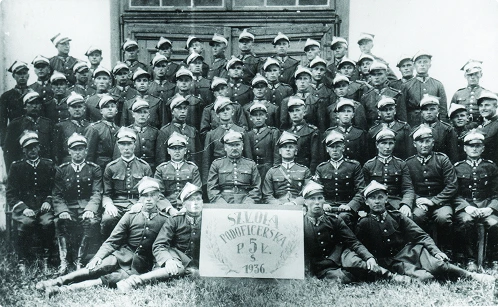 SZKOŁA
PODOFICERSKA
P. 5 L.
1936